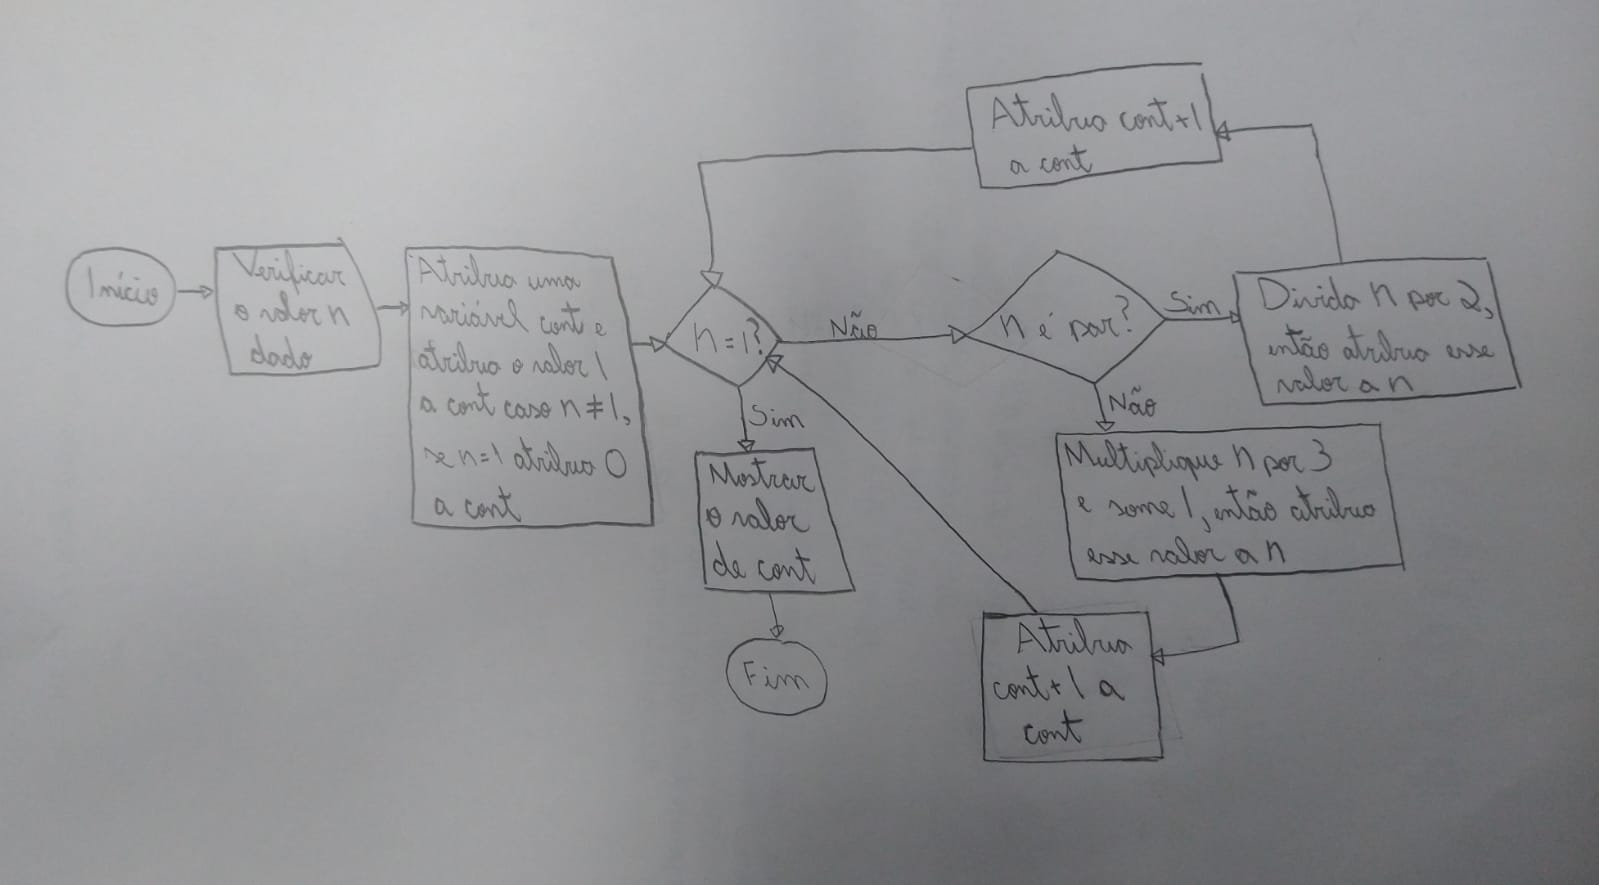 Início
Verificar
o valor n
dado
Atribua uma
variável cont e
atribua o valor 1
a cont caso n ≠ 1,
se n=1 atribua 0
a cont
n=1?
Sim
Mostrar
o valor
de cont
Fim
Não
n é par?
Sim
Divida n por 2,
então atribua esse
valor a n
Atribua cont+1
a cont
Não
Multiplique n por 3
e some 1, então atribua
esse valor a n
Atribua
cont+1 a
cont